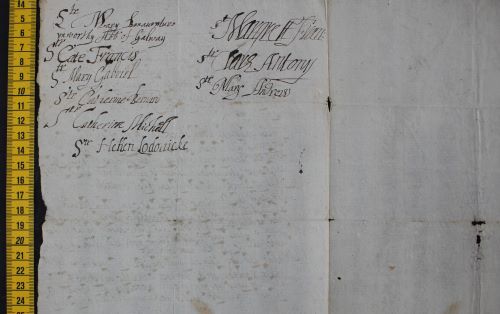 Str Mary Bonaventure
Abb of Galway
Str Cate Francis
Str Mary Gabriel
Str Catherine Bernard
Str Catherine Michell
Str Hellen Lodovicke
Str Margrett
Str Antony
Str Mary
14
5
6
7
8
9
10
11
12
13
14
15
16
17
18
19
20
21
22
23
24